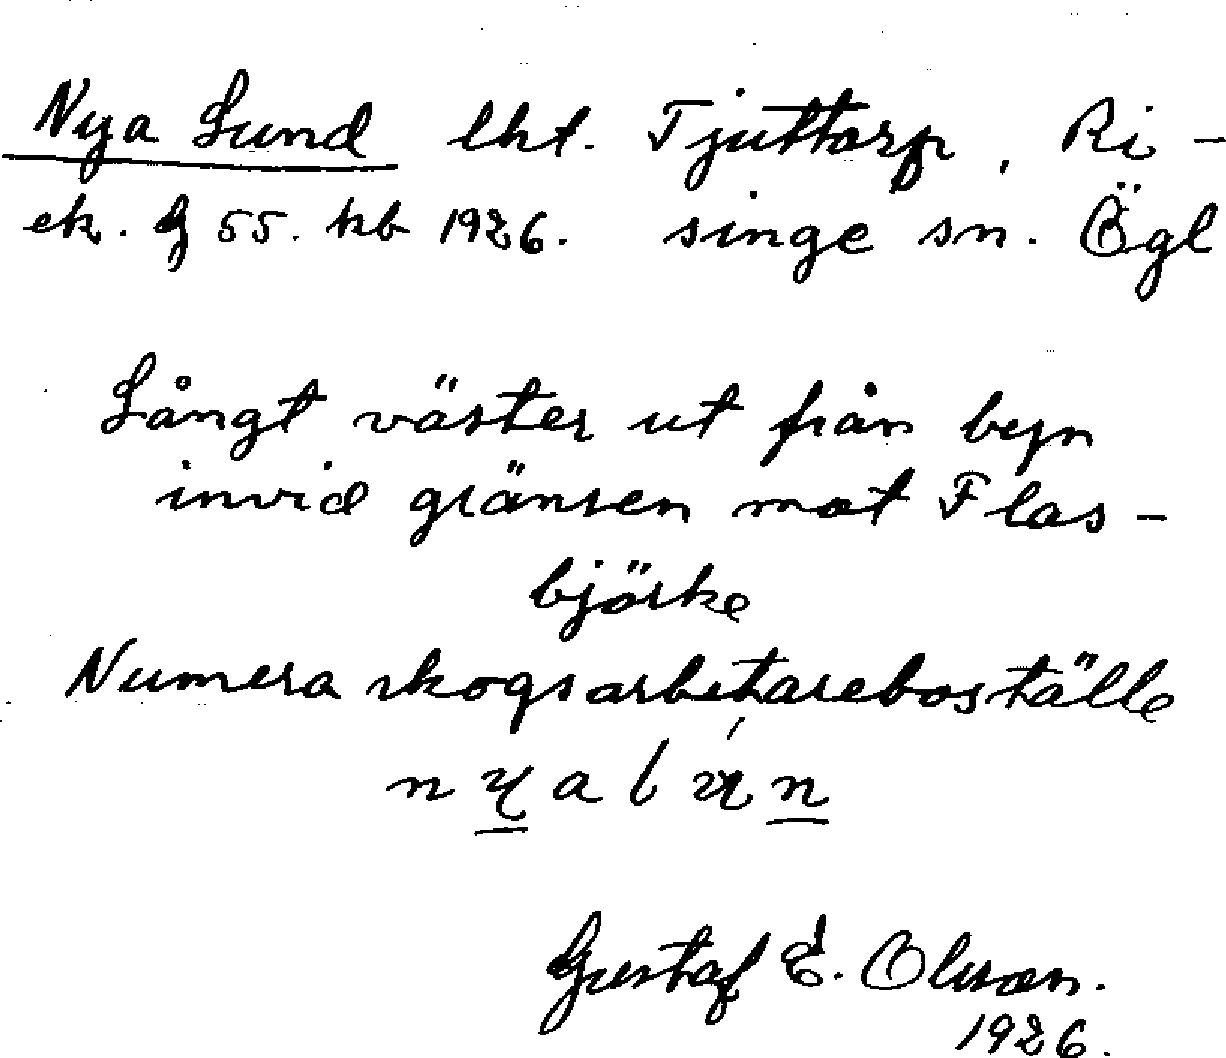 Nya Lund lht. Tjuttorp, Ri-
ek. 55. hb 1926. singe sn. Ögl
Långt väster ut från byn
invid gränsen mot Flas-
björke
Numera skogsarbetareboställe
Gustaf E. Olsson.
1926.